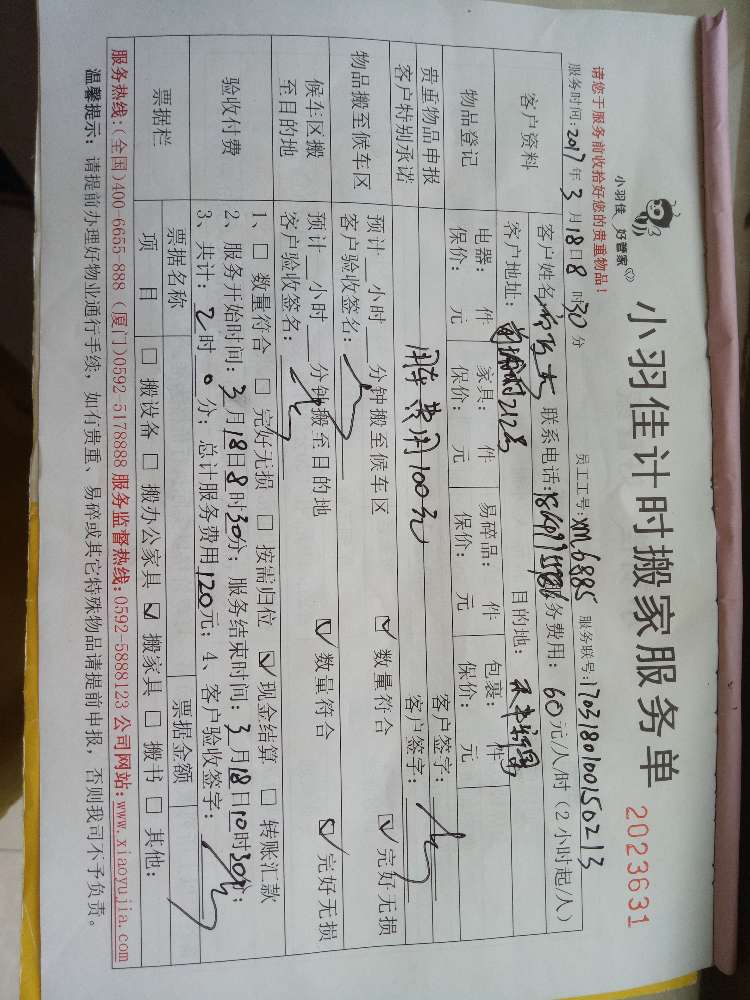 小羽佳 好管家
小羽佳计时搬家服务单
2023631
请您于服务前收拾好您的贵重物品!
服务时间:2017年3月18日8时30分 员工工号:XM6885 服务联号:170318010015０213
客户资料
客户姓名: 联系电话: 服务费用:60元/人/时(2小时起/人)
客户地址: 212号 目的地:
物品登记
电器: 件 家具: 件 易碎品: 件 包裹: 件
保价: 元 保价: 元 保价: 元 保价: 元
贵重物品申报 客户签字:
客户特别承诺 用车费用100元 客户签字:
物品搬至候车区
预计 小时 分钟搬至候车区 ☑ 数量符合 ☑ 完好无损
客户验收签名:
候车区搬至目的地
预计 小时 分钟搬至目的地 ☑ 数量符合 ☑ 完好无损
客户验收签名:
验收付费
1、□ 数量符合 □ 完好无损 □ 按需归位 ☑ 现金结算 □ 转账汇款
2、服务开始时间:3月18日8时30分;服务结束时间:3月18日10时30分;
3、共计:2时0分;总计服务费用120元;4、客户验收签字:
票据栏
票据名称 票据金额
项目 □ 搬设备 □ 搬办公家具 ☑ 搬家具 □ 搬书 □ 其他:
服务热线:(全国)400-6655-888 (厦门)0592-5178888 服务监督热线:0592-5888123 公司网站:www.xiaoyujia.com
温馨提示:请提前办理好物业通行手续,如有贵重、易碎或其它特殊物品请提前申报,否则我司不予负责。